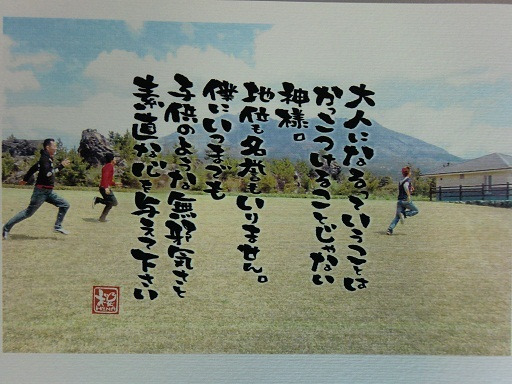 大人になるっていうことは
かっこつけることじゃない
神様。
地位も名誉もいりません。
僕にいつまでも
子供のような無邪気さと
素直な心を与えて下さい